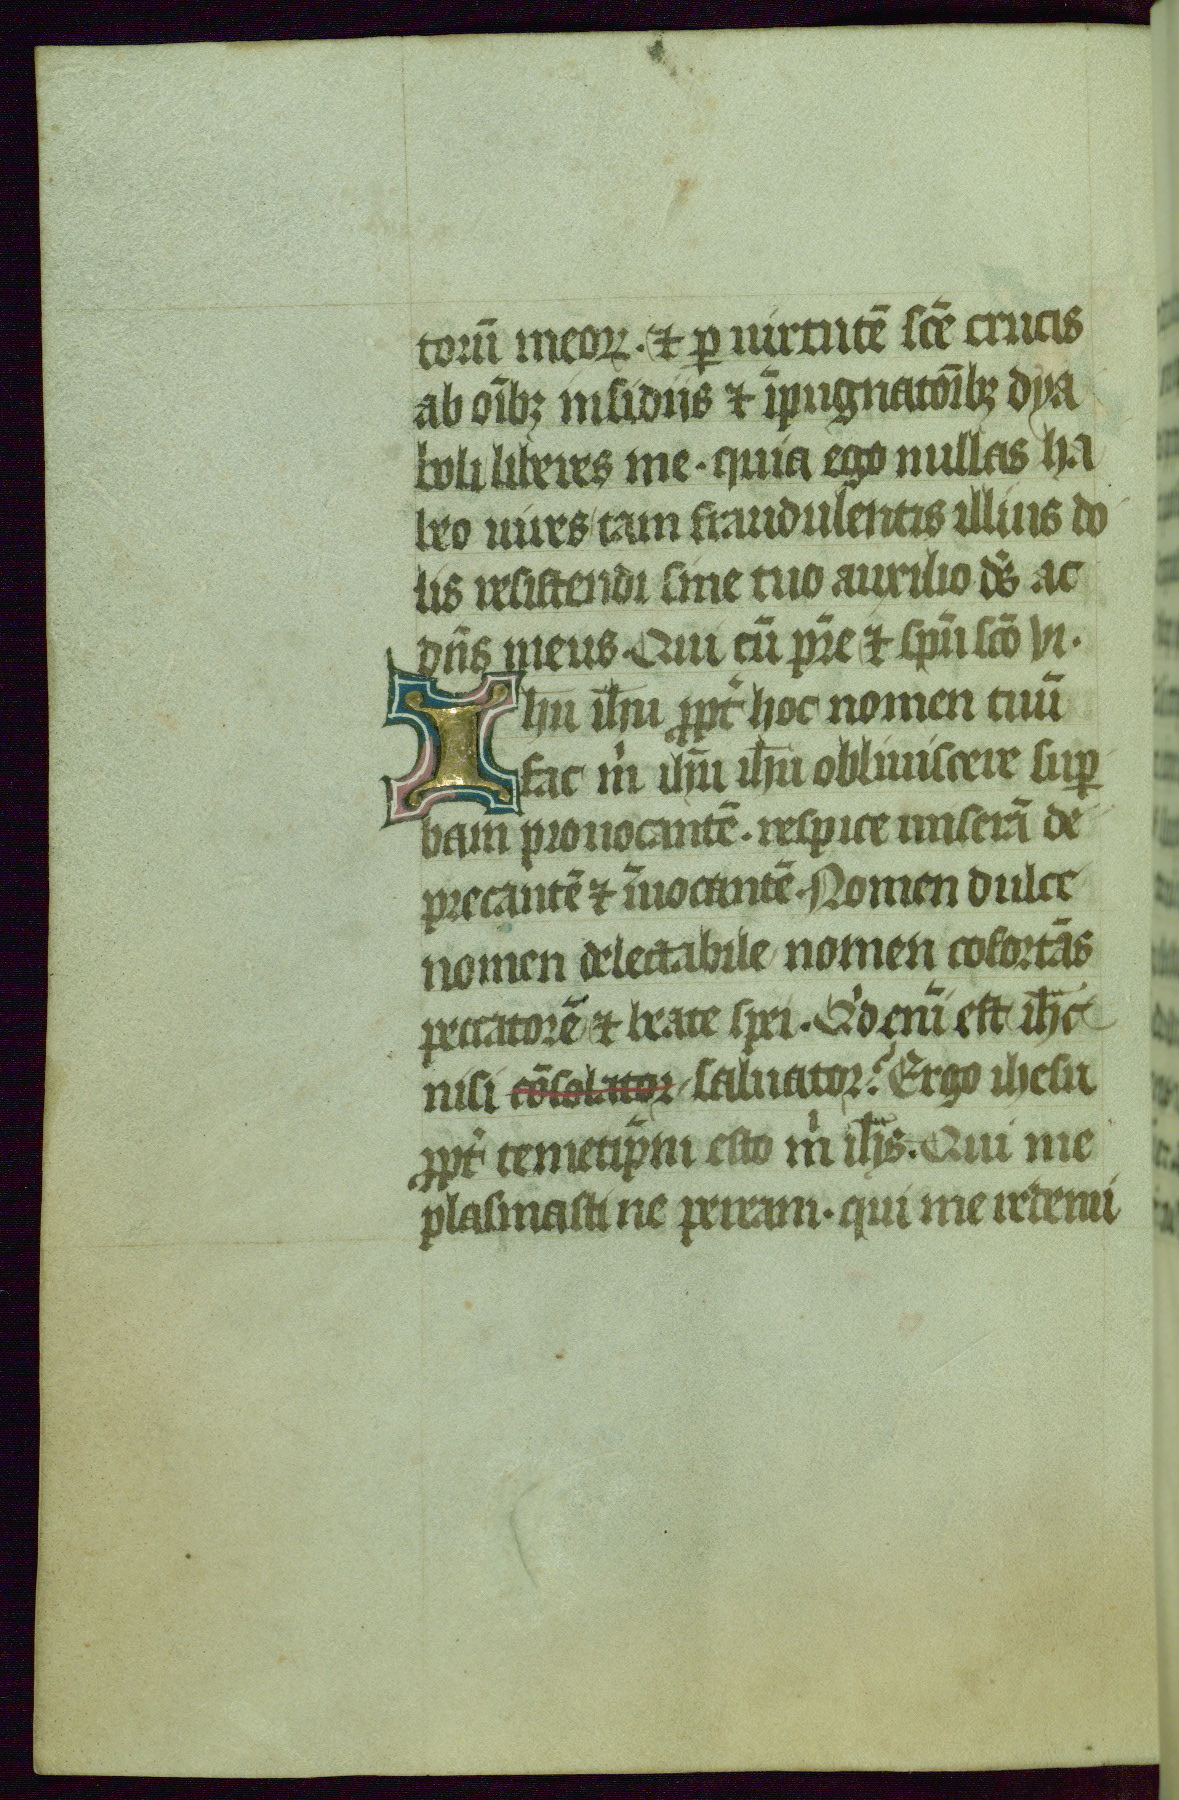 torū meoꝝ. ⁊ ꝑ uirtutē scē crucis
ab oībꝫ insidiis ⁊ īpugnatōībꝫ dya
boli liberes me. quia ego nullas ha
beo uires tam fraudulentis illius do
lis resistendi sine tuo auxilio ds̄ ac
dn̄s meus. Qui cū pr̄e ⁊ spū scō vi.
Ihu ih̄u ꝓpt̄ hoc nomen tuū
fac m̄ ihu ih̄u obliuiscere suꝑ
bam prouocantē. respice miserā de
precantē ⁊ īuocantē. Nomen dulce
nomen delectabile nomen cofortās
peccatorē ⁊ beate spei. Qd enī est ih̄c
nisi cōsolator saluator? Ergo ihesu
ꝓpt̄ temetip̄m esto m̄ ih̄s. Qui me
plasmasti ne peream. qui me redemi